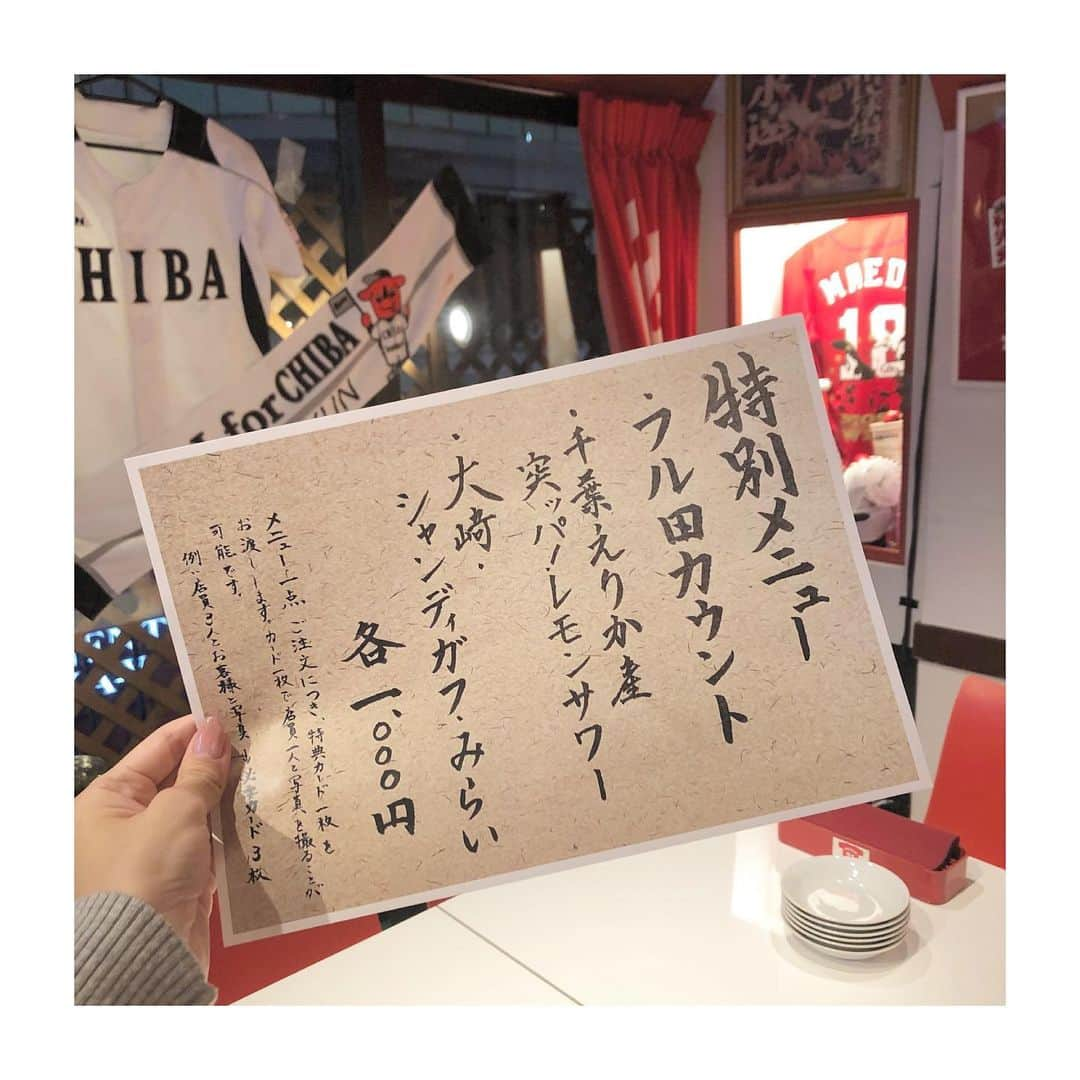 特別メニュー
・フル田カウント
・千葉えりか産
突ッパノレモンサワー
・大崎・
シャンディガフ・みらい
各一、〇〇〇円
メニュー一点、ご注文につき、特典カード一枚を
お渡しします。カード一枚で店員一人と写真を撮ることが
可能です。
例、店員3人とお客様と写真
カード3枚
HIBA
for CHIBA
MAED
18